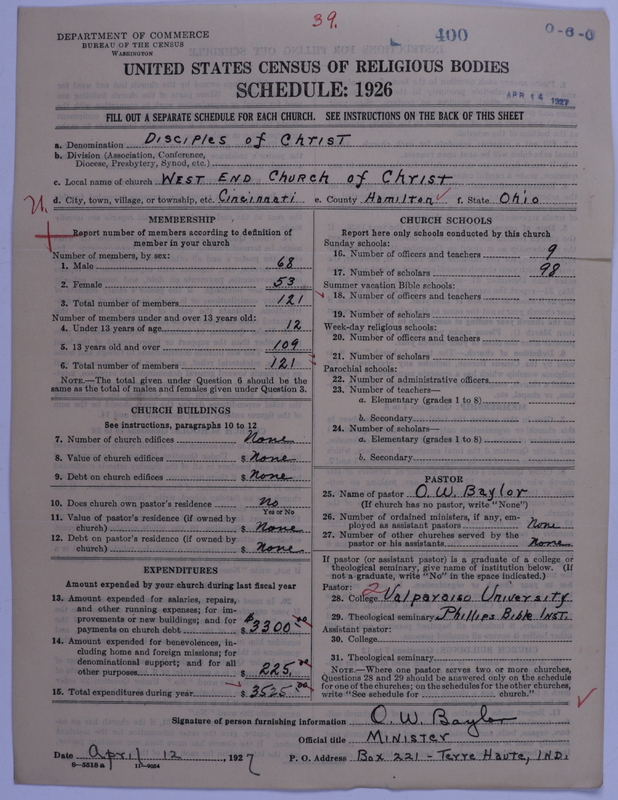 39.
400
0-6-0
DEPARTMENT OF COMMERCE
BUREAU OF THE CENSUS
WASHINGTON
UNITED STATES CENSUS OF RELIGIOUS BODIES
SCHEDULE: 1926
APR 14 1927
FILL OUT A SEPARATE SCHEDULE FOR EACH CHURCH. SEE INSTRUCTIONS ON THE BACK OF THIS SHEET
a. Denomination Disciples of Christ
b. Division (Association, Conference,
Diocese, Presbytery, Synod, etc.)
c. Local name of church West End Church of Christ
d. City, town, village, or township, etc. Cincinnati e. County Hamilton f. State Ohio
MEMBERSHIP
Report number of members according to definition of
member in your church
Number of members, by sex:
1. Male 68
2. Female 53
3. Total number of members 121
Number of members under and over 13 years old:
4. Under 13 years of age 12
5. 13 years old and over 109
6. Total number of members 121
NOTE.—The total given under Question 6 should be the
same as the total of males and females given under Question 3.
CHURCH BUILDINGS
See instructions, paragraphs 10 to 12
7. Number of church edifices None
8. Value of church edifices $ None
9. Debt on church edifices $ None
10. Does church own pastor's residence No
Yes or No
11. Value of pastor's residence (if owned by
church) $ None
12. Debt on pastor's residence (if owned by
church) $ None
EXPENDITURES
Amount expended by your church during last fiscal year
13. Amount expended for salaries, repairs,
and other running expenses; for im-
provements or new buildings; and for
payments on church debt $ $3300.00
14. Amount expended for benevolences, in-
cluding home and foreign missions; for
denominational support; and for all
other purposes $ 225.00
15. Total expenditures during year $ 3525.00
CHURCH SCHOOLS
Report here only schools conducted by this church
Sunday schools:
16. Number of officers and teachers 9
17. Number of scholars 98
Summer vacation Bible schools:
18. Number of officers and teachers
19. Number of scholars
Week-day religious schools:
20. Number of officers and teachers
21. Number of scholars
Parochial schools:
22. Number of administrative officers
23. Number of teachers—
a. Elementary (grades 1 to 8)
b. Secondary
24. Number of scholars—
a. Elementary (grades 1 to 8)
b. Secondary
PASTOR
25. Name of pastor O. W. Baylor
(If church has no pastor, write "None")
26. Number of ordained ministers, if any, em-
ployed as assistant pastors None
27. Number of other churches served by the
pastor or his assistants None
If pastor (or assistant pastor) is a graduate of a college or
theological seminary, give name of institution below. (If
not a graduate, write "No" in the space indicated.)
Pastor:
28. College 2 Valparaiso University
29. Theological seminary Phillips Bible Inst.
Assistant pastor:
30. College
31. Theological seminary
NOTE.—Where one pastor serves two or more churches,
Questions 28 and 29 should be answered only on the schedule
for one of the churches; on the schedules for the other churches,
write "See schedule for church."
Signature of person furnishing information O. W. Baylor
Official title Minister
Date April 12, 1927 P. O. Address Box 221 - Terre Haute, Ind.
8-5518a 11-9054